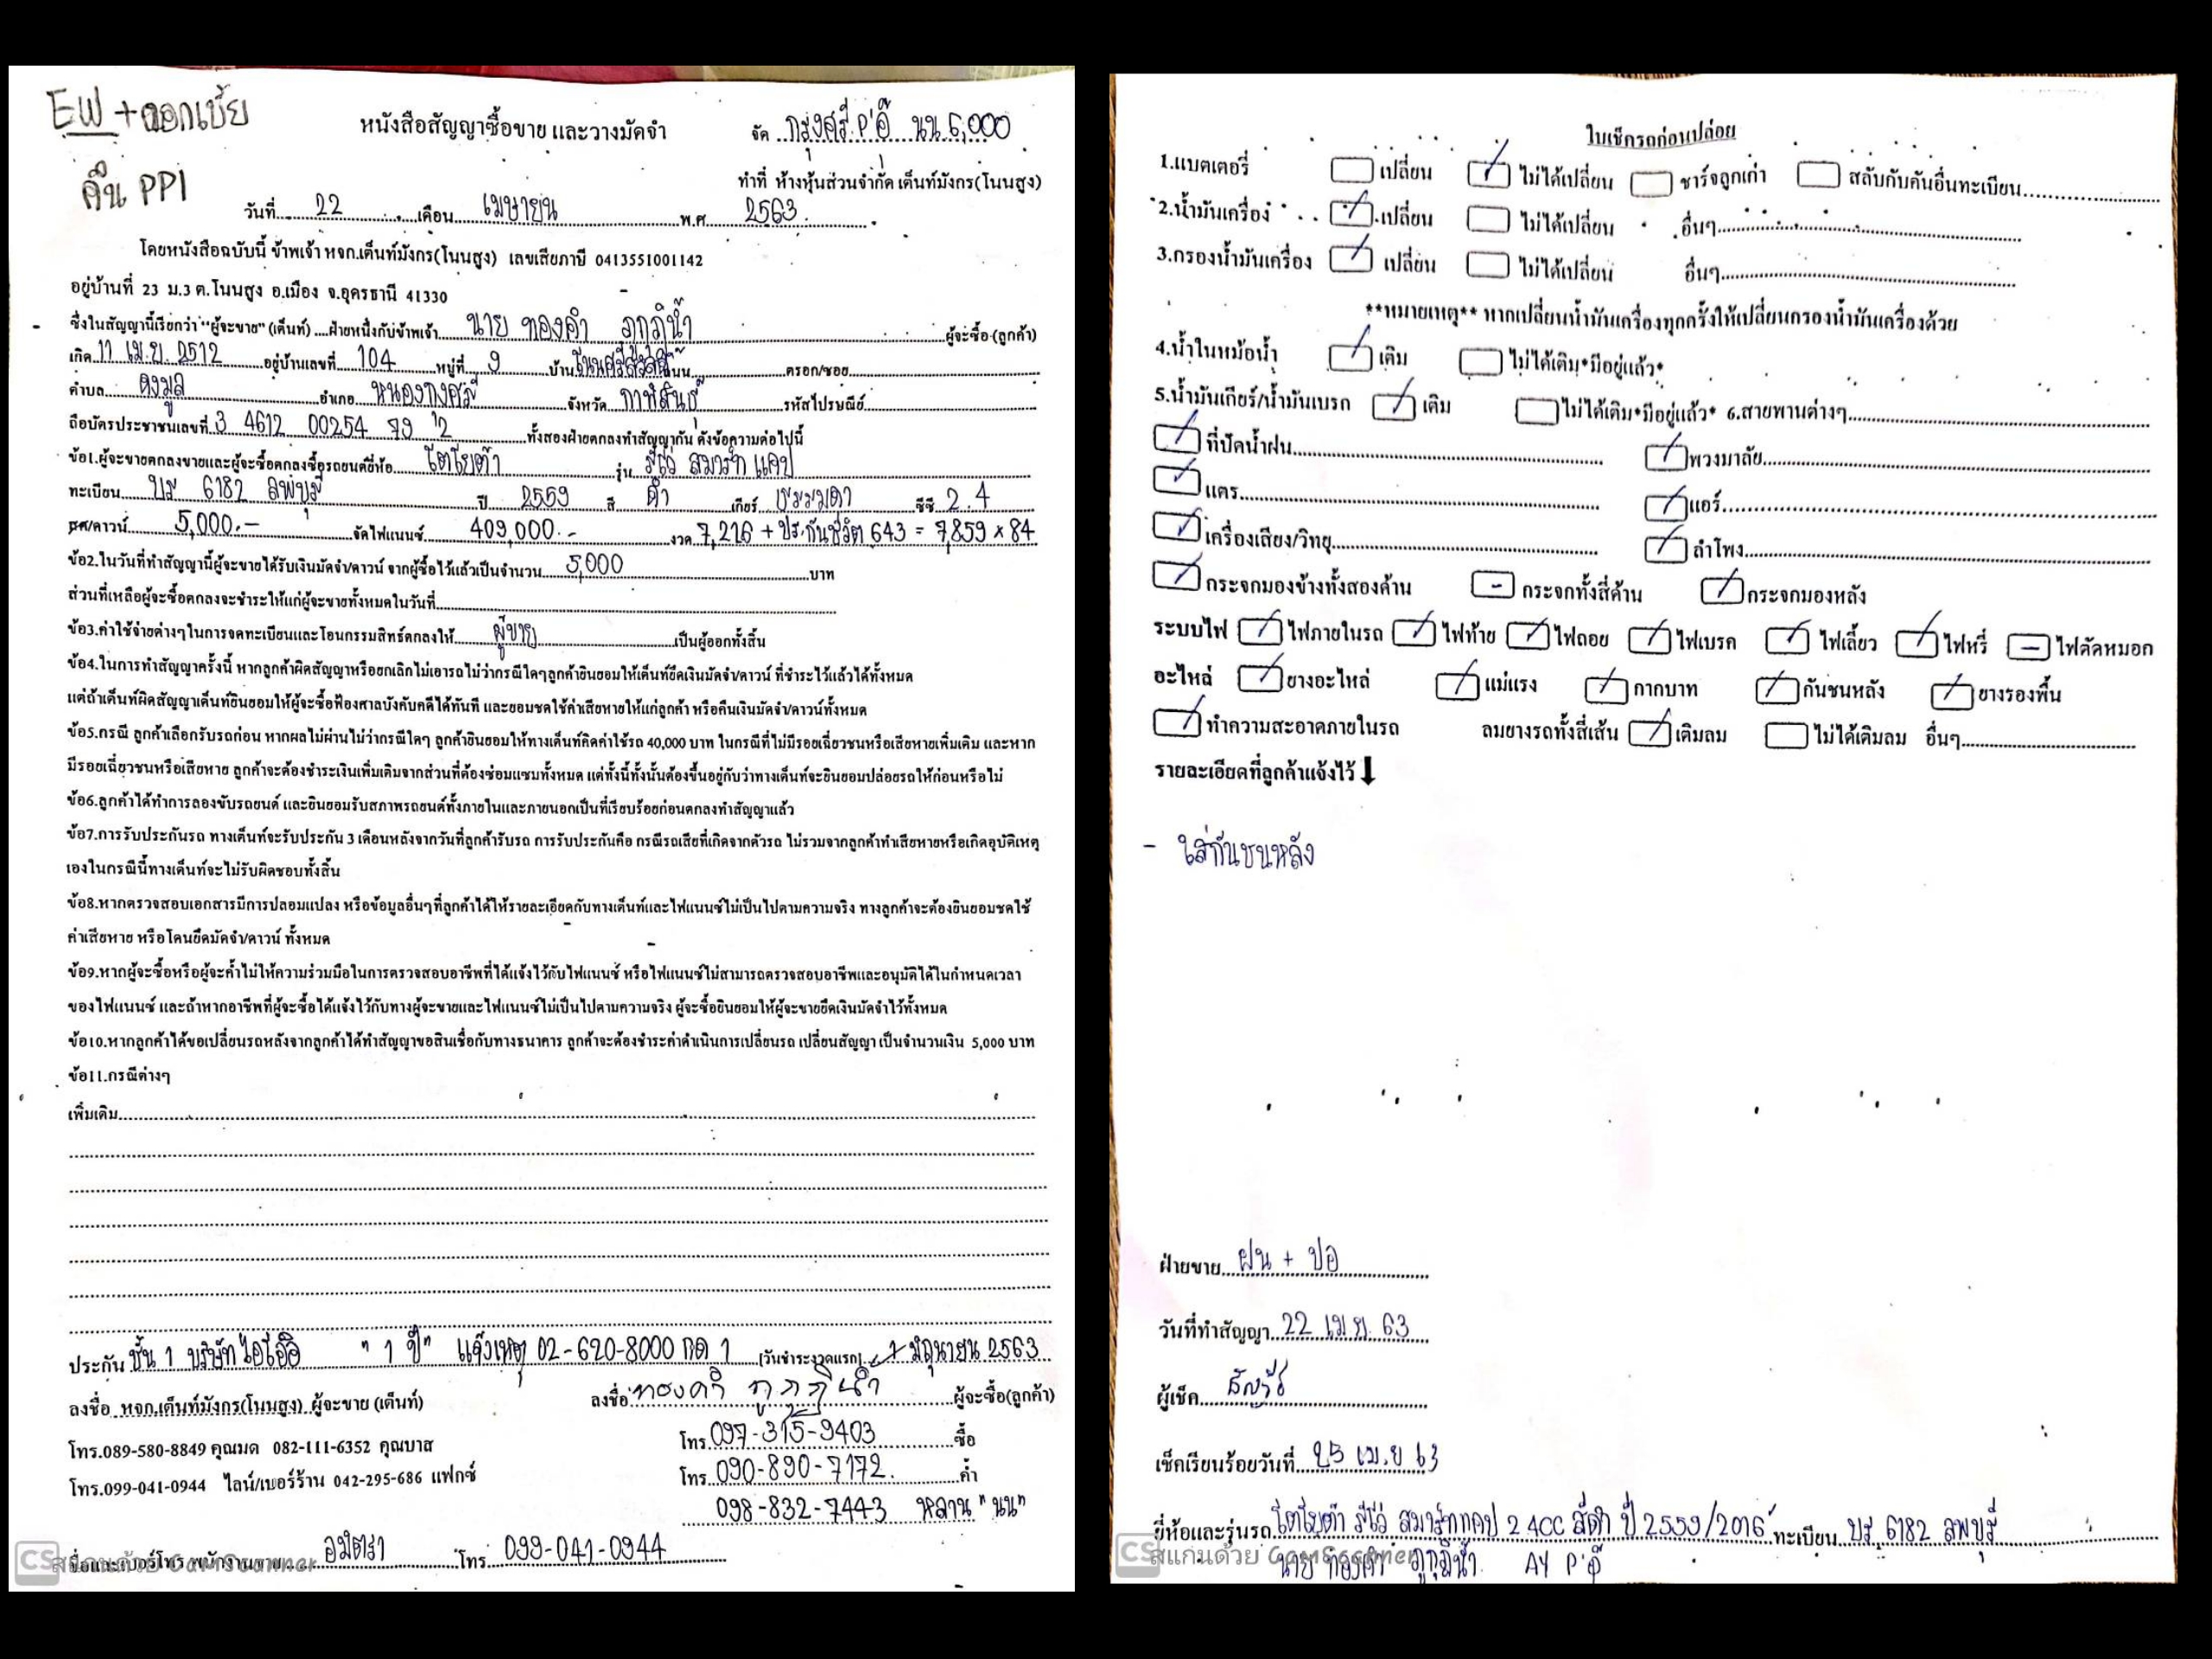 EW + ดอกเบี้ย
คืน PPI
หนังสือสัญญาซื้อขาย และวางมัดจำ
จัด กรุงศรี.P'อี๊ นน.6,000
ทำที่ ห้างหุ้นส่วนจำกัด เต็นท์มังกร(โนนสูง)
วันที่ 22 เดือน เมษายน พ.ศ 2563.
โดยหนังสือฉบับนี้ ข้าพเจ้า หจก.เต็นท์มังกร(โนนสูง) เลขเสียภาษี 0413551001142
อยู่บ้านที่ 23 ม.3 ต.โนนสูง อ.เมือง จ.อุดรธานี 41330
ซึ่งในสัญญานี้เรียกว่า "ผู้จะขาย" (เต็นท์) ....ฝ่ายหนึ่งกับข้าพเจ้า นาย ทองคำ ภูภูมิน้ำ ผู้จะซื้อ (ลูกค้า)
เกิด 11 เม.ย. 2512 อยู่บ้านเลขที่ 104 หมู่ที่ 9 บ้าน ถนน ตรอก/ซอย
ตำบล ดงมูล อำเภอ หนองกุงศรี จังหวัด กาฬสินธุ์ รหัสไปรษณีย์
ถือบัตรประชาชนเลขที่ 3 4612 00254 79 2 ทั้งสองฝ่ายตกลงทำสัญญากัน ดังข้อความต่อไปนี้
ข้อ1.ผู้จะขายตกลงขายและผู้จะซื้อตกลงซื้อรถยนต์ยี่ห้อ โตโยต้า รุ่น รีโว่ สมาร์ท แคป
ทะเบียน บร 6182 ลพบุรี ปี 2559 สี ดำ เกียร์ ธรรมดา ซีซี 2.4
สด/ดาวน์ 5,000.- จัดไฟแนนซ์ 409,000.- งวด 7,216 + ประกันชีวิต 643 = 7,859 × 84
ข้อ2.ในวันที่ทำสัญญานี้ผู้จะขายได้รับเงินมัดจำ/ดาวน์ จากผู้ซื้อไว้แล้วเป็นจำนวน 5,000 บาท
ส่วนที่เหลือผู้จะซื้อตกลงจะชำระให้แก่ผู้จะขายทั้งหมดในวันที่
ข้อ3.ค่าใช้จ่ายต่างๆในการจดทะเบียนและโอนกรรมสิทธิ์ตกลงให้ ผู้ขาย เป็นผู้ออกทั้งสิ้น
ข้อ4.ในการทำสัญญาครั้งนี้ หากลูกค้าผิดสัญญาหรือยกเลิกไม่เอารถไม่ว่ากรณีใดๆลูกค้ายินยอมให้เต็นท์ยึดเงินมัดจำ/ดาวน์ ที่ชำระไว้แล้วได้ทั้งหมด
แต่ถ้าเต็นท์ผิดสัญญาเต็นท์ยินยอมให้ผู้จะซื้อฟ้องศาลบังคับคดีได้ทันที และยอมชดใช้ค่าเสียหายให้แก่ลูกค้า หรือคืนเงินมัดจำ/ดาวน์ทั้งหมด
ข้อ5.กรณี ลูกค้าเลือกรับรถก่อน หากผลไม่ผ่านไม่ว่ากรณีใดๆ ลูกค้ายินยอมให้ทางเต็นท์คิดค่าใช้รถ 40,000 บาท ในกรณีที่ไม่มีรอยเฉี่ยวชนหรือเสียหายเพิ่มเติม และหาก
มีรอยเฉี่ยวชนหรือเสียหาย ลูกค้าจะต้องชำระเงินเพิ่มเติมจากส่วนที่ต้องซ่อมแซมทั้งหมด แต่ทั้งนี้ทั้งนั้นต้องขึ้นอยู่กับว่าทางเต็นท์จะยินยอมปล่อยรถให้ก่อนหรือไม่
ข้อ6.ลูกค้าได้ทำการลองขับรถยนต์ และยินยอมรับสภาพรถยนต์ทั้งภายในและภายนอกเป็นที่เรียบร้อยก่อนตกลงทำสัญญาแล้ว
ข้อ7.การรับประกันรถ ทางเต็นท์จะรับประกัน 3 เดือนหลังจากวันที่ลูกค้ารับรถ การรับประกันคือ กรณีรถเสียที่เกิดจากตัวรถ ไม่รวมจากลูกค้าทำเสียหายหรือเกิดอุบัติเหตุ
เองในกรณีนี้ทางเต็นท์จะไม่รับผิดชอบทั้งสิ้น
ข้อ8.หากตรวจสอบเอกสารมีการปลอมแปลง หรือข้อมูลอื่นๆที่ลูกค้าได้ให้รายละเอียดกับทางเต็นท์และไฟแนนซ์ไม่เป็นไปตามความจริง ทางลูกค้าจะต้องยินยอมชดใช้
ค่าเสียหาย หรือโดนยึดมัดจำ/ดาวน์ ทั้งหมด
ข้อ9.หากผู้จะซื้อหรือผู้จะค้ำไม่ให้ความร่วมมือในการตรวจสอบอาชีพที่ได้แจ้งไว้กับไฟแนนซ์ หรือไฟแนนซ์ไม่สามารถตรวจสอบอาชีพและอนุมัติได้ในกำหนดเวลา
ของไฟแนนซ์ และถ้าหากอาชีพที่ผู้จะซื้อได้แจ้งไว้กับทางผู้จะขายและไฟแนนซ์ไม่เป็นไปตามความจริง ผู้จะซื้อยินยอมให้ผู้จะขายยึดเงินมัดจำไว้ทั้งหมด
ข้อ10.หากลูกค้าได้ขอเปลี่ยนรถหลังจากลูกค้าได้ทำสัญญาขอสินเชื่อกับทางธนาคาร ลูกค้าจะต้องชำระค่าดำเนินการเปลี่ยนรถ เปลี่ยนสัญญา เป็นจำนวนเงิน 5,000 บาท
ข้อ11.กรณีต่างๆ
เพิ่มเติม
ประกัน ชั้น 1 บริษัท ไอโออิ " 1 ปี" แจ้งเหตุ 02-620-8000 กด 1 (วันชำระงวดแรก) 1 มิถุนายน 2563
ลงชื่อ หจก.เต็นท์มังกร(โนนสูง) ผู้จะขาย (เต็นท์) ลงชื่อ ทองคำ ภูภูมิน้ำ ผู้จะซื้อ(ลูกค้า)
โทร.089-580-8849 คุณมด 082-111-6352 คุณบาส โทร 097-315-9403 ซื้อ
โทร.099-041-0944 ไลน์/เบอร์ร้าน 042-295-686 แฟกซ์ โทร 090-890-7172. ค้ำ
098-832-7443 หลาน "นน"
ชื่อและเบอร์โทร พนักงานขาย อมิตรา โทร 099-041-0944
CS สแกนด้วย CamScanner
ใบเช็กรถก่อนปล่อย
1.แบตเตอรี่ เปลี่ยน ไม่ได้เปลี่ยน ชาร์จลูกเก่า สลับกับคันอื่นทะเบียน
2.น้ำมันเครื่อง เปลี่ยน ไม่ได้เปลี่ยน อื่นๆ
3.กรองน้ำมันเครื่อง เปลี่ยน ไม่ได้เปลี่ยน อื่นๆ
**หมายเหตุ** หากเปลี่ยนน้ำมันเครื่องทุกครั้งให้เปลี่ยนกรองน้ำมันเครื่องด้วย
4.น้ำในหม้อน้ำ เติม ไม่ได้เติม*มีอยู่แล้ว*
5.น้ำมันเกียร์/น้ำมันเบรก เติม ไม่ได้เติม*มีอยู่แล้ว* 6.สายพานต่างๆ
ที่ปัดน้ำฝน พวงมาลัย
แตร แอร์
เครื่องเสียง/วิทยุ ลำโพง
กระจกมองข้างทั้งสองด้าน กระจกทั้งสี่ด้าน กระจกมองหลัง
ระบบไฟ ไฟภายในรถ ไฟท้าย ไฟถอย ไฟเบรค ไฟเลี้ยว ไฟหรี่ ไฟตัดหมอก
อะไหล่ ยางอะไหล่ แม่แรง กากบาท กันชนหลัง ยางรองพื้น
ทำความสะอาดภายในรถ ลมยางรถทั้งสี่เส้น เติมลม ไม่ได้เติมลม อื่นๆ
รายละเอียดที่ลูกค้าแจ้งไว้
- ใส่กันชนหลัง
ฝ่ายขาย ฝน + ปอ
วันที่ทำสัญญา 22 เม.ย. 63
ผู้เช็ค
เช็กเรียบร้อยวันที่ 25 เม.ย 63
ยี่ห้อและรุ่นรถ โตโยต้า รีโว่ สมาร์ทแคป 2.4CC สีดำ ปี 2559/2016 ทะเบียน บร 6182 ลพบุรี
นาย ทองคำ ภูภูมิน้ำ AY P'อี๊
CS สแกนด้วย CamScanner